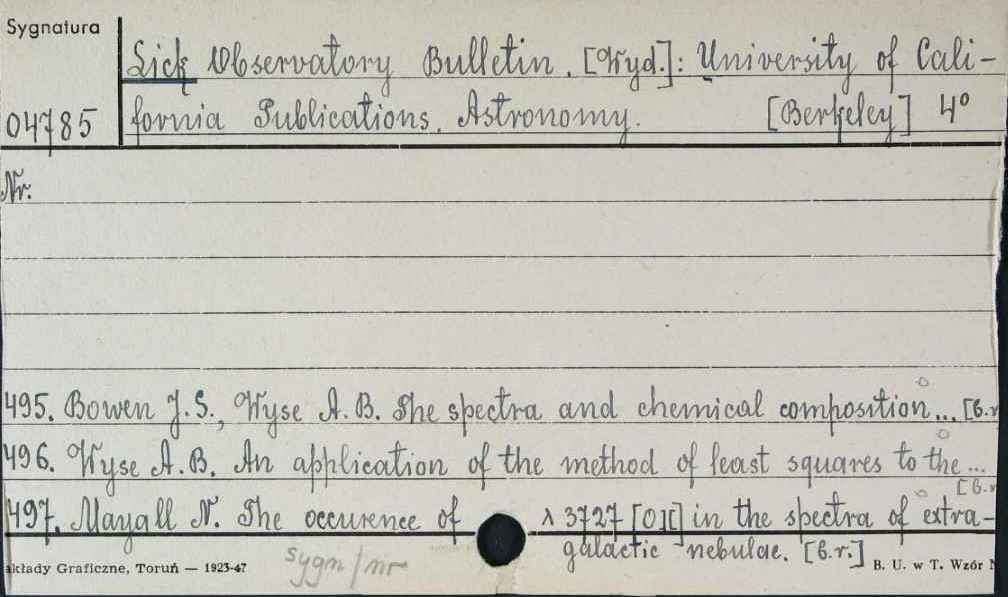 Sygnatura
Lick Observatory Bulletin. [Wyd.]: University of Cali-
04785
fornia Publications. Astronomy. [Berkeley] 4º
Nr.
495. Bowen J.S., Wyse A.B. The spectra and chemical composition... [b.r
496. Wyse A.B. An application of the method of least squares to the...
[b.r
497. Mayall N. The occurence of λ 3727 [OII] in the spectra of extra-
galactic nebulae. [b.r.]
akłady Graficzne, Toruń — 1923-47
sygn/nr
B. U. w T. Wzór N